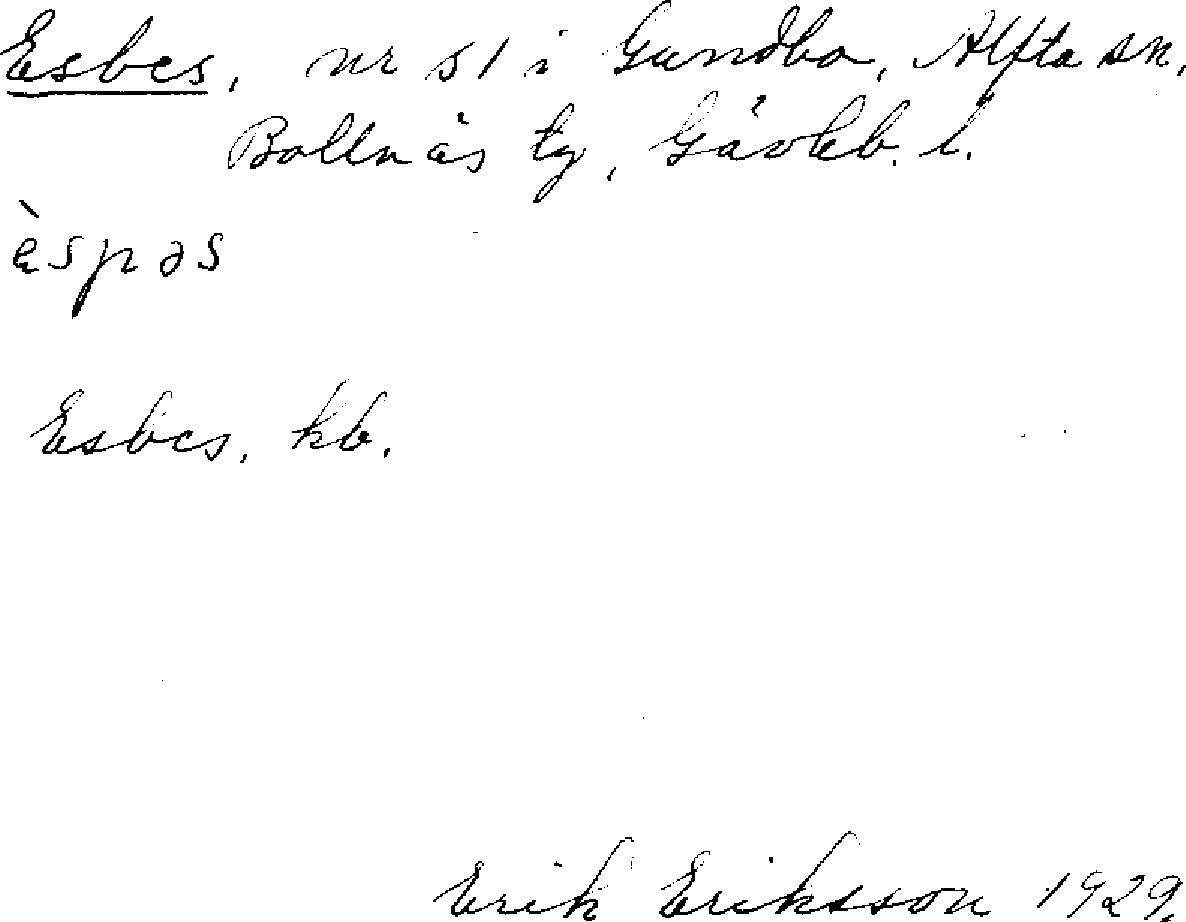 Esbes, nr 51 i Gundbo, Alfta sn,
Bollnäs tg, Gävleb. l.
èspəs
Esbes, kb.
Erik Eriksson 1929.